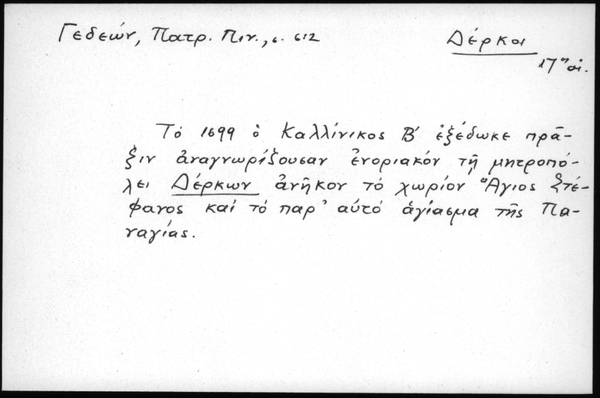 Γεδεών, Πατρ. Πιν., σ. 612
Δέρκοι
17ος αἰ.
Τό 1699 ὁ Καλλίνικος Β΄ ἐξέδωκε πρᾶ-
ξιν ἀναγνωρίζουσαν ἐνοριακόν τῇ μητροπό-
λει Δέρκων ἀνῆκον τό χωρίον Ἅγιος Στέ-
φανος καί τό παρ' αὐτό ἁγίασμα τῆς Πα-
ναγίας.